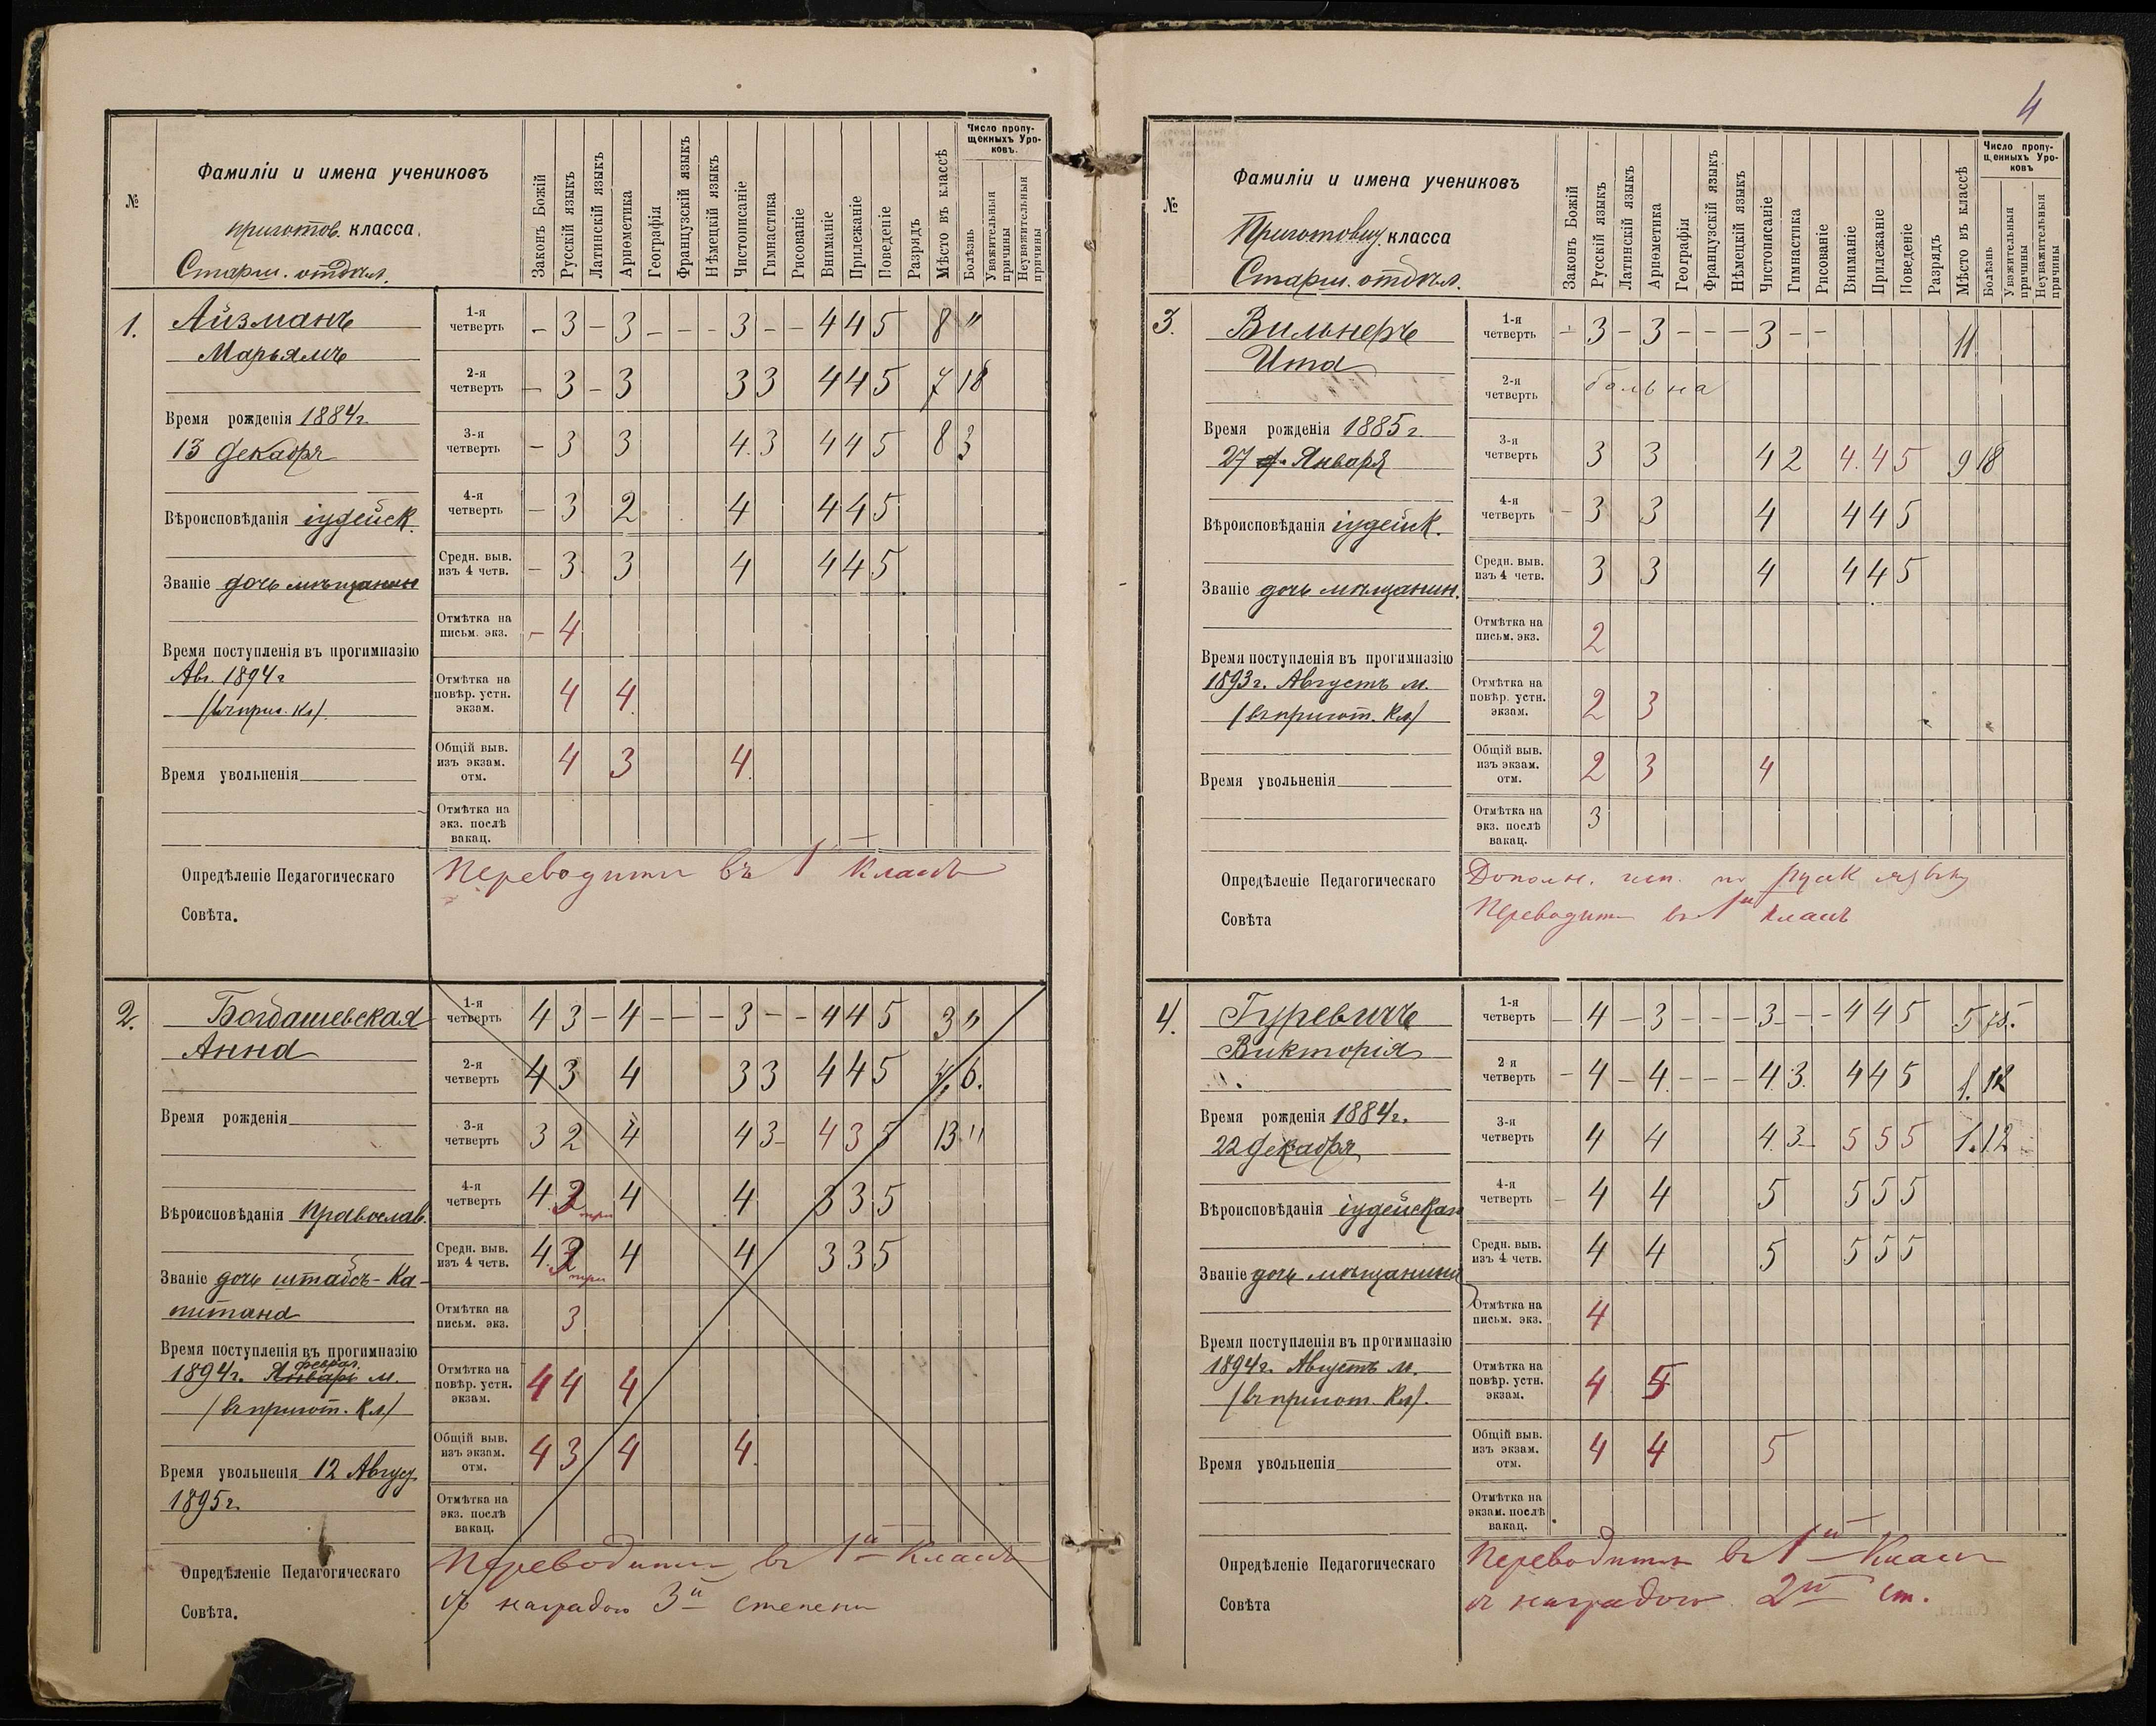 №
Фамиліи и имена учениковъ
приготов. класса.
Старш. отдѣл.
Законъ Божій
Русскій языкъ
Латинскій языкъ
Ариѳметика
Географія
Французскій языкъ
Нѣмецкій языкъ
Чистописаніе
Гимнастика
Рисованіе
Вниманіе
Прилежаніе
Поведеніе
Разрядъ
Мѣсто въ классѣ
Число пропу-
щенныхъ Уро-
ковъ.
Болѣзнь
Уважительныя причины
Неуважительныя причины
1.
Айзманъ
Марьямъ
Время рожденія 1884г.
13 Декабря
Вѣроисповѣданія іудейск.
Званіе дочь мѣщанин
Время поступленія въ прогимназію
Авг. 1894г
(въ приг. Кл)
Время увольненія
1-я четверть – 3 – 3 – – – 3 – – 4 4 5 8 "
2-я четверть – 3 – 3 3 3 4 4 5 7 18
3-я четверть – 3 3 4. 3 4 4 5 8 3
4-я четверть – 3 2 4 4 4 5
Средн. выв. изъ 4 четв. – 3 3 4 4 4 5
Отмѣтка на письм. экз. – 4
Отмѣтка на повѣр. устн. экзам. 4 4
Общій выв. изъ экзам. отм. 4 3 4
Отмѣтка на экз. послѣ вакац.
Опредѣленіе Педагогическаго
Совѣта.
Переводити въ 1 классъ
2.
Богдашевская
Анна
Время рожденія
Вѣроисповѣданія Православ.
Званіе дочь штабсъ-Ка-
питана
Время поступленія въ прогимназію
феврал.
1894г. Январь м.
(въ пригот. Кл)
Время увольненія 12 Август
1895г.
1-я четверть 4 3 – 4 – – – 3 – – 4 4 5 3 "
2-я четверть 4 3 4 3 3 4 4 5 6.
3-я четверть 3 2 4 4 3 – 4 3 5 13 "
4-я четверть 4. 3 три 4 4 3 3 5
Средн. выв. изъ 4 четв. 4. 3 три 4 4 3 3 5
Отмѣтка на письм. экз. 3
Отмѣтка на повѣр. устн. экзам. 4 4 4
Общій выв. изъ экзам. отм. 4 3 4 4.
Отмѣтка на экз. послѣ вакац.
Опредѣленіе Педагогическаго
Совѣта.
Переводити въ 1й классъ
съ наградою 3й степени
4
№
Фамиліи и имена учениковъ
Приготовит. класса
Старш. отдѣл.
Законъ Божій
Русскій языкъ
Латинскій языкъ
Ариѳметика
Географія
Французскій языкъ
Нѣмецкій языкъ
Чистописаніе
Гимнастика
Рисованіе
Вниманіе
Прилежаніе
Поведеніе
Разрядъ
Мѣсто въ классѣ
Число пропу-
щенныхъ Уро-
ковъ
Болѣзнь
Уважительныя причины
Неуважительныя причины
3.
Вильнеръ
Ита
Время рожденія 1885г.
27 Января
Вѣроисповѣданія іудейск.
Званіе дочь мѣщанин.
Время поступленія въ прогимназію
1893г. Августъ м.
(въ пригот. Кл)
Время увольненія
1-я четверть – 3 – 3 – – – 3 – – 11
2-я четверть больна
3-я четверть 3 3 4 2 4. 4 5 9 18
4-я четверть – 3 3 4 4 4 5
Средн. выв. изъ 4 четв. 3 3 4 4 4 5
Отмѣтка на письм. экз. 2
Отмѣтка на повѣр. устн. экзам. 2 3
Общій выв. изъ экзам. отм. 2 3 4
Отмѣтка на экз. послѣ вакац. 3
Опредѣленіе Педагогическаго
Совѣта
Дополн. исп. по русск языку
Переводит въ 1й классъ
4.
Гуревичъ
Викторія
Время рожденія 1884г.
22 Декабря
Вѣроисповѣданія іудейская
Званіе дочь мѣщанина
Время поступленія въ прогимназію
1894г. Августъ м.
(въ пригот. Кл).
Время увольненія
1-я четверть – 4 – 3 – – – 3 – – 4 4 5 5
2 я четверть – 4 – 4 – – – 4. 3. 4 4 5 1. 12
3-я четверть 4 4 4. 3 – 5 5 5 1. 12
4-я четверть – 4 4 5 5 5 5
Средн. выв. изъ 4 четв. 4 4 5 5 5 5
Отмѣтка на письм. экз. 4
Отмѣтка на повѣр. устн. экзам. 4 5
Общій выв. изъ экзам. отм. 4 4 5
Отмѣтка на экзам. послѣ вакац.
Опредѣленіе Педагогическаго
Совѣта
Переводити въ 1й Классъ
съ наградою 2й ст.